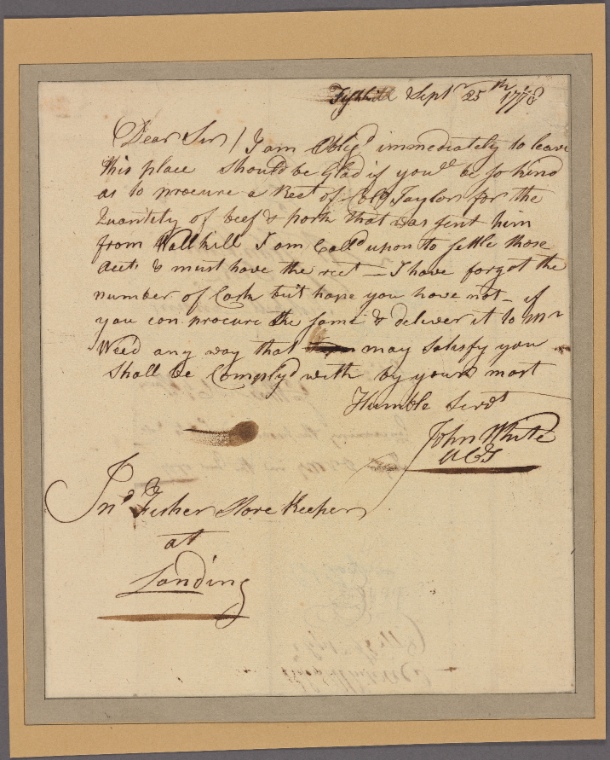 Fishkill Sept 25th 1778
Dear Sir/ I am Oblig'd immediately to leave
this place should be Glad if you'd be so kind
as to procure a Rect of Colo Taylor for the
Quantety of beef & pork that was sent him
from Wallkill I am Call'd upon to settle those
Acts & must have the rect — I have forgot the
number of Cask but hope you have not – if
you can procure the same & deliver it to Mr
Weed any way that may satisfy you
shall be Comply'd with by yours most
Humble Servt
John White
ACI
Jno Fisher Store Keeper
at
Landing